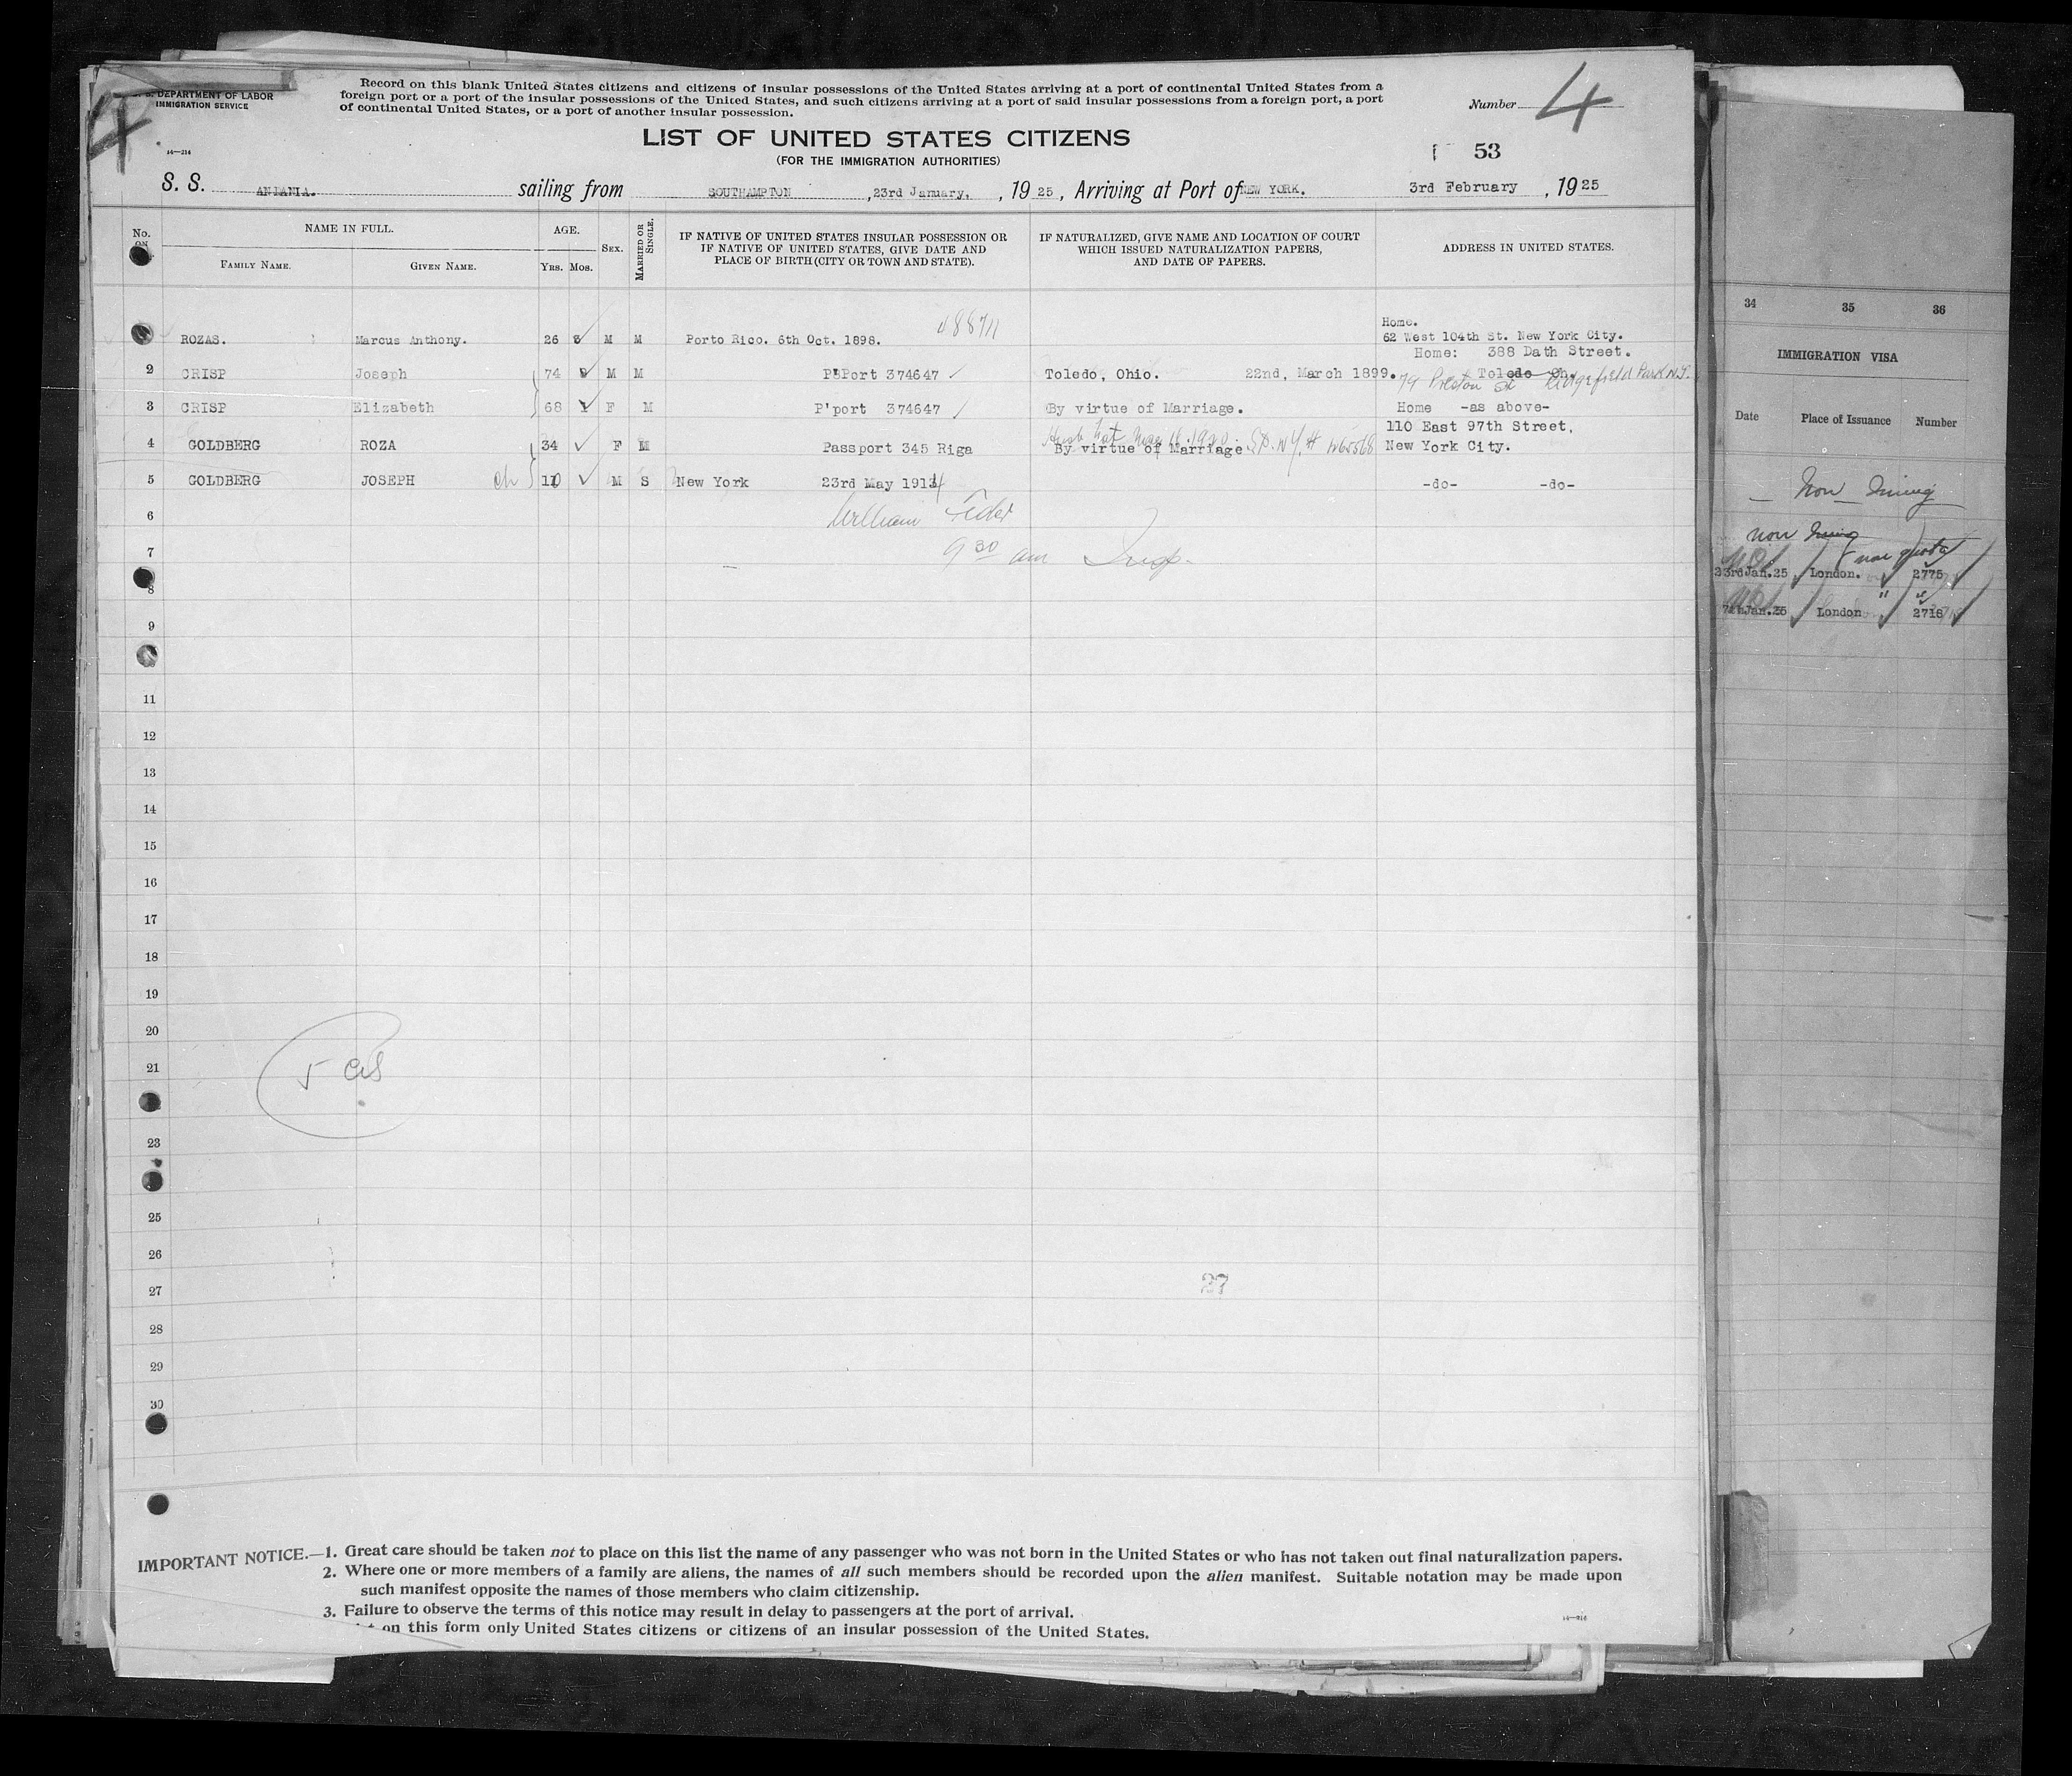 U. S. DEPARTMENT OF LABOR
IMMIGRATION SERVICE
4
Record on this blank United States citizens and citizens of insular possessions of the United States arriving at a port of continental United States from a
foreign port or a port of the insular possessions of the United States, and such citizens arriving at a port of said insular possessions from a foreign port, a port
of continental United States, or a port of another insular possession.
Number 4
LIST OF UNITED STATES CITIZENS
(FOR THE IMMIGRATION AUTHORITIES)
53
14—214
S. S. ANIANIA. sailing from SOUTHAMPTON, 23rd January, 1925, Arriving at Port of NEW YORK. 3rd February, 1925
No. ON
NAME IN FULL.
FAMILY NAME.
GIVEN NAME.
AGE.
YRS. MOS.
SEX.
MARRIED OR SINGLE.
IF NATIVE OF UNITED STATES INSULAR POSSESSION OR
IF NATIVE OF UNITED STATES, GIVE DATE AND
PLACE OF BIRTH (CITY OR TOWN AND STATE).
IF NATURALIZED, GIVE NAME AND LOCATION OF COURT
WHICH ISSUED NATURALIZATION PAPERS,
AND DATE OF PAPERS.
ADDRESS IN UNITED STATES.
48871
Home.
ROZAS. Marcus Anthony. 26 M M Porto Rico. 6th Oct. 1898. 62 West 104th St. New York City.
Home: 388 Dath Street.
2 CRISP Joseph 74 M M P'Port 374647 Toledo, Ohio. 22nd, March 1899. Toledo Oh.
79 Preston St Ridgefield Park N.J.
3 CRISP Elizabeth 68 F M P'port 374647 By virtue of Marriage. Home -as above-
110 East 97th Street,
Husb Nat Mar 16 1920
4 GOLDBERG ROZA 34 F M Passport 345 Riga By virtue of Marriage New York City.
5 GOLDBERG JOSEPH ch 10 M S New York 23rd May 1914 -do- -do-
6 William
7 9 30 am Insp.
8
9
11
12
13
14
15
16
17
18
19
20
21
5 cis
23
25
26
27
27
28
29
30
IMPORTANT NOTICE.—1. Great care should be taken not to place on this list the name of any passenger who was not born in the United States or who has not taken out final naturalization papers.
2. Where one or more members of a family are aliens, the names of all such members should be recorded upon the alien manifest. Suitable notation may be made upon
such manifest opposite the names of those members who claim citizenship.
3. Failure to observe the terms of this notice may result in delay to passengers at the port of arrival.
on this form only United States citizens or citizens of an insular possession of the United States.
34 35 36
IMMIGRATION VISA
Date Place of Issuance Number
Non Immig
non Immig
non quota
23rd Jan. 25 London. 2775
7th Jan. 25 London " 2718